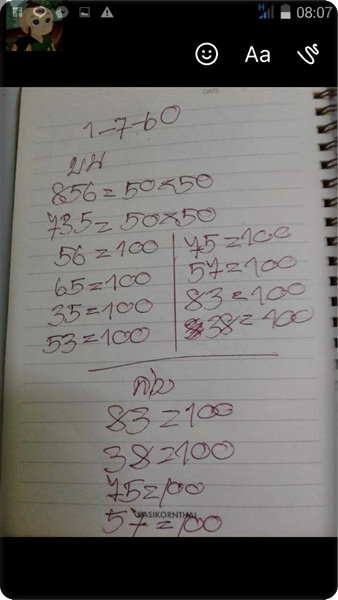 08:07
Aa
1-7-60
บน
856=50×50
735=50×50
56=100
65=100
35=100
53=100
75=100
57=100
83=100
38=100
ล่าง
83=100
38=100
75=100
57=100